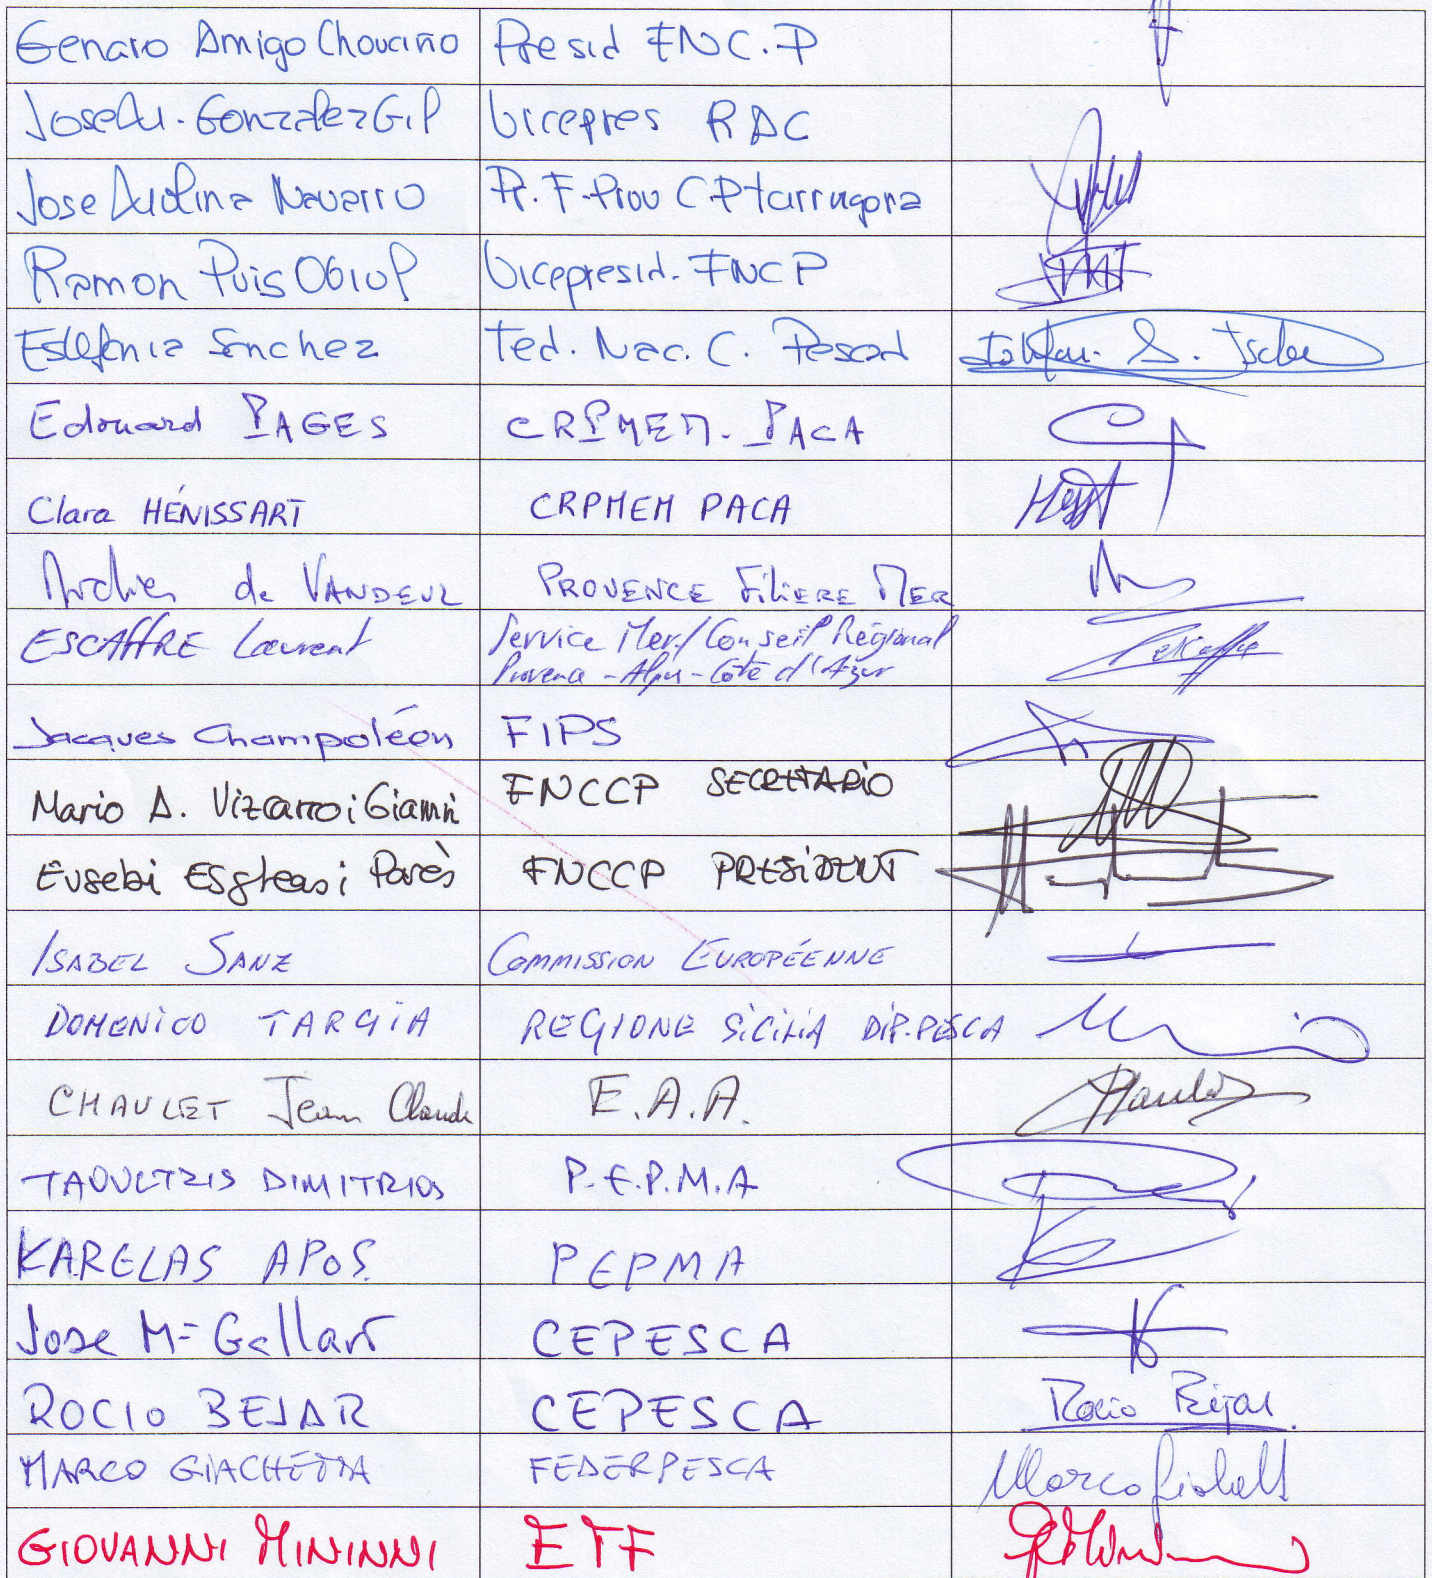 Genaro Amigo Chouciño Presid FNC.P
Jose M. Gonzalez Gil Vicepres RAC
Jose Molina Navarro Pr. F. Prov C.P tarragona
Ramon Puis Obiol Vicepresid. FNCP
Estefania Sanchez Fed. Nac. C. Pescad
Edouard PAGES CRPMEM. PACA
Clara HÉNISSART CRPMEM PACA
de VANDEUL PROVENCE FiLiERE MER
ESCAffRE Laurent Service Mer/Conseil Régional
Provence-Alpes-Côte d'Azur
Jacques Champoléon FIPS
Mario A. Vizcarro i Gianni FNCCP SECRETARiO
Eusebi Esgleas i Parès FNCCP PRESiDENT
ISABEL SANZ COMMISSION EUROPÉENNE
DOMENiCO TARGiA REGIONE SiCiLiA DiP.PESCA
CHAULET Jean Claude E.A.A.
DIMITRIOS P.E.P.M.A
KARELAS APOS. PEPMA
Jose Mª Gallart CEPESCA
ROCIO BEJAR CEPESCA Rocio Béjar
MARCO GIACHETTA FEDERPESCA Marco
GIOVANNI MININNI ETF